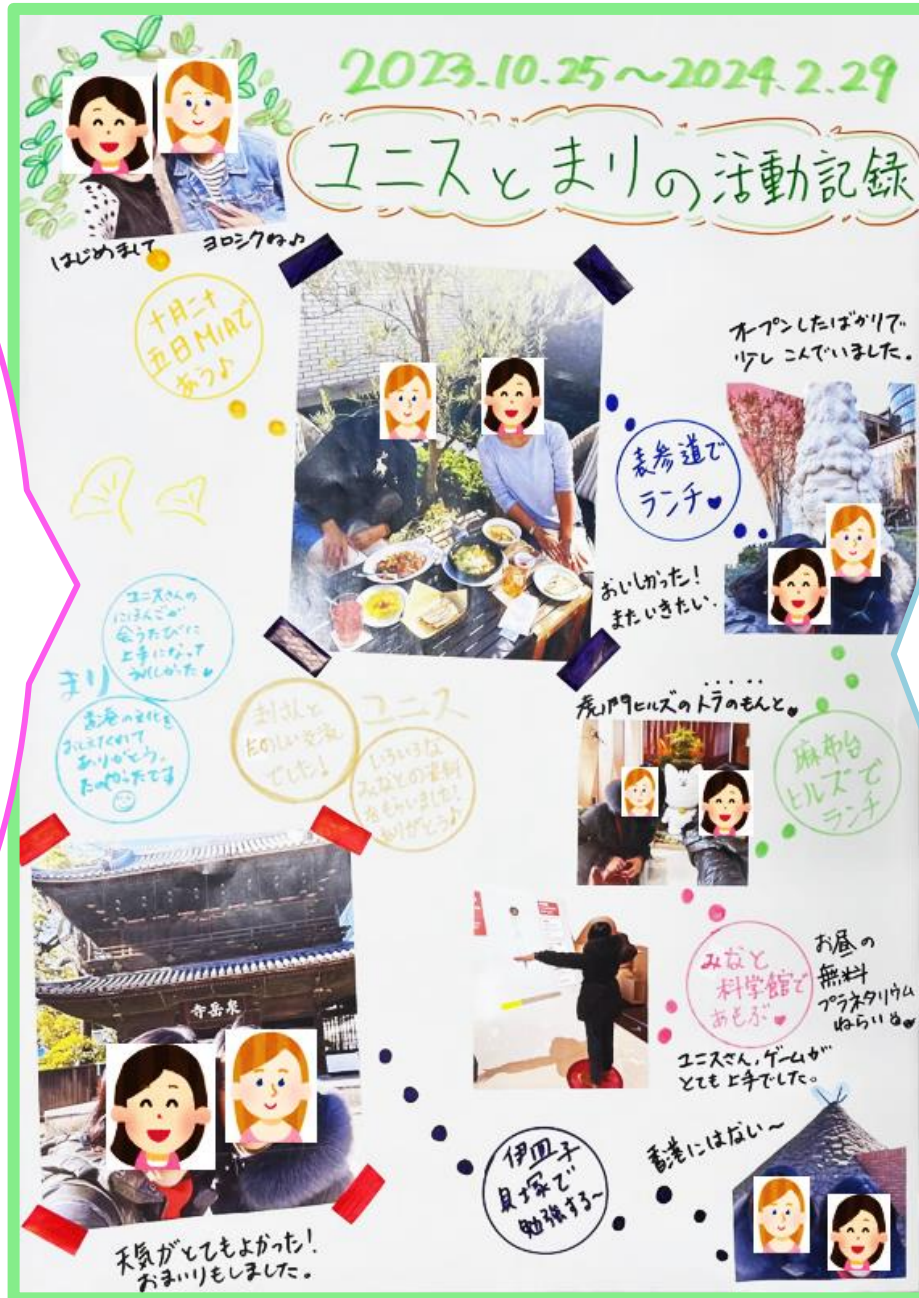 2023.10.25〜2024.2.29
ユニスとまりの活動記録
はじめまして
ヨロシクね♪
十月二十
五日MIAで
あう♪
オープンしたばかりで
少しこんでいました。
表参道で
ランチ♥
おいしかった!
またいきたい.
ユニスさんの
にほんごが
会うたびに
上手になって
うれしかった♥
まり
香港の文化を
おしえてくれて
ありがとう。
たのしかったです
まりさんと
たのしい交流
でした!
ユニス
いろいろな
みなとの資料
をもらいました!
ありがとう♪
虎ノ門ヒルズのトラのもんと♥
麻布台
ヒルズで
ランチ
みなと
科学館で
あそぶ♥
お昼の
無料
プラネタリウム
ねらいめ♥
ユニスさん、ゲームが
とても上手でした。
寺岳泉
伊皿子
貝塚で
勉強する〜
香港にはない〜
天気がとてもよかった!
おまいりもしました。